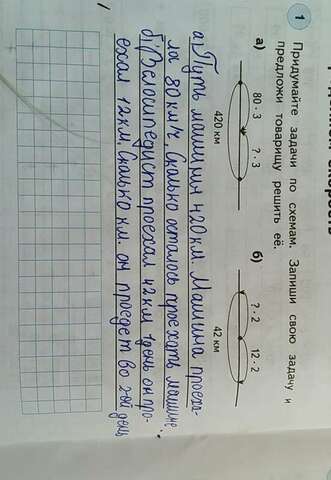 1
Придумайте задачи по схемам. Запиши свою задачу и
предложи товарищу решить её.
а)
80 · 3
? · 3
420 км
б)
? · 2
12 · 2
42 км
а) Путь машины 420 км Машина проеха-
ла 80 км/ч. Сколько осталось проехать машине.
б) Велосипедист проехал 42 км 1 день он про-
ехал 12 км. Сколько км. он проедет во 2ой день